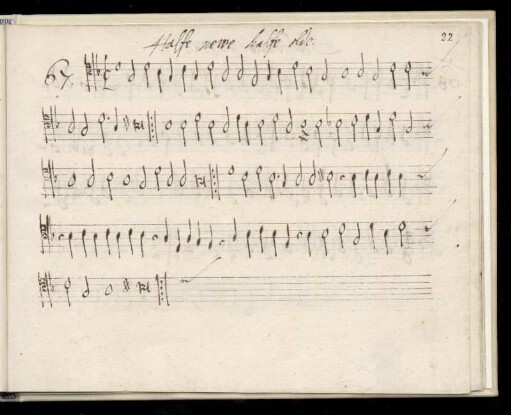 Halfe newe halfe olde. 22
67.